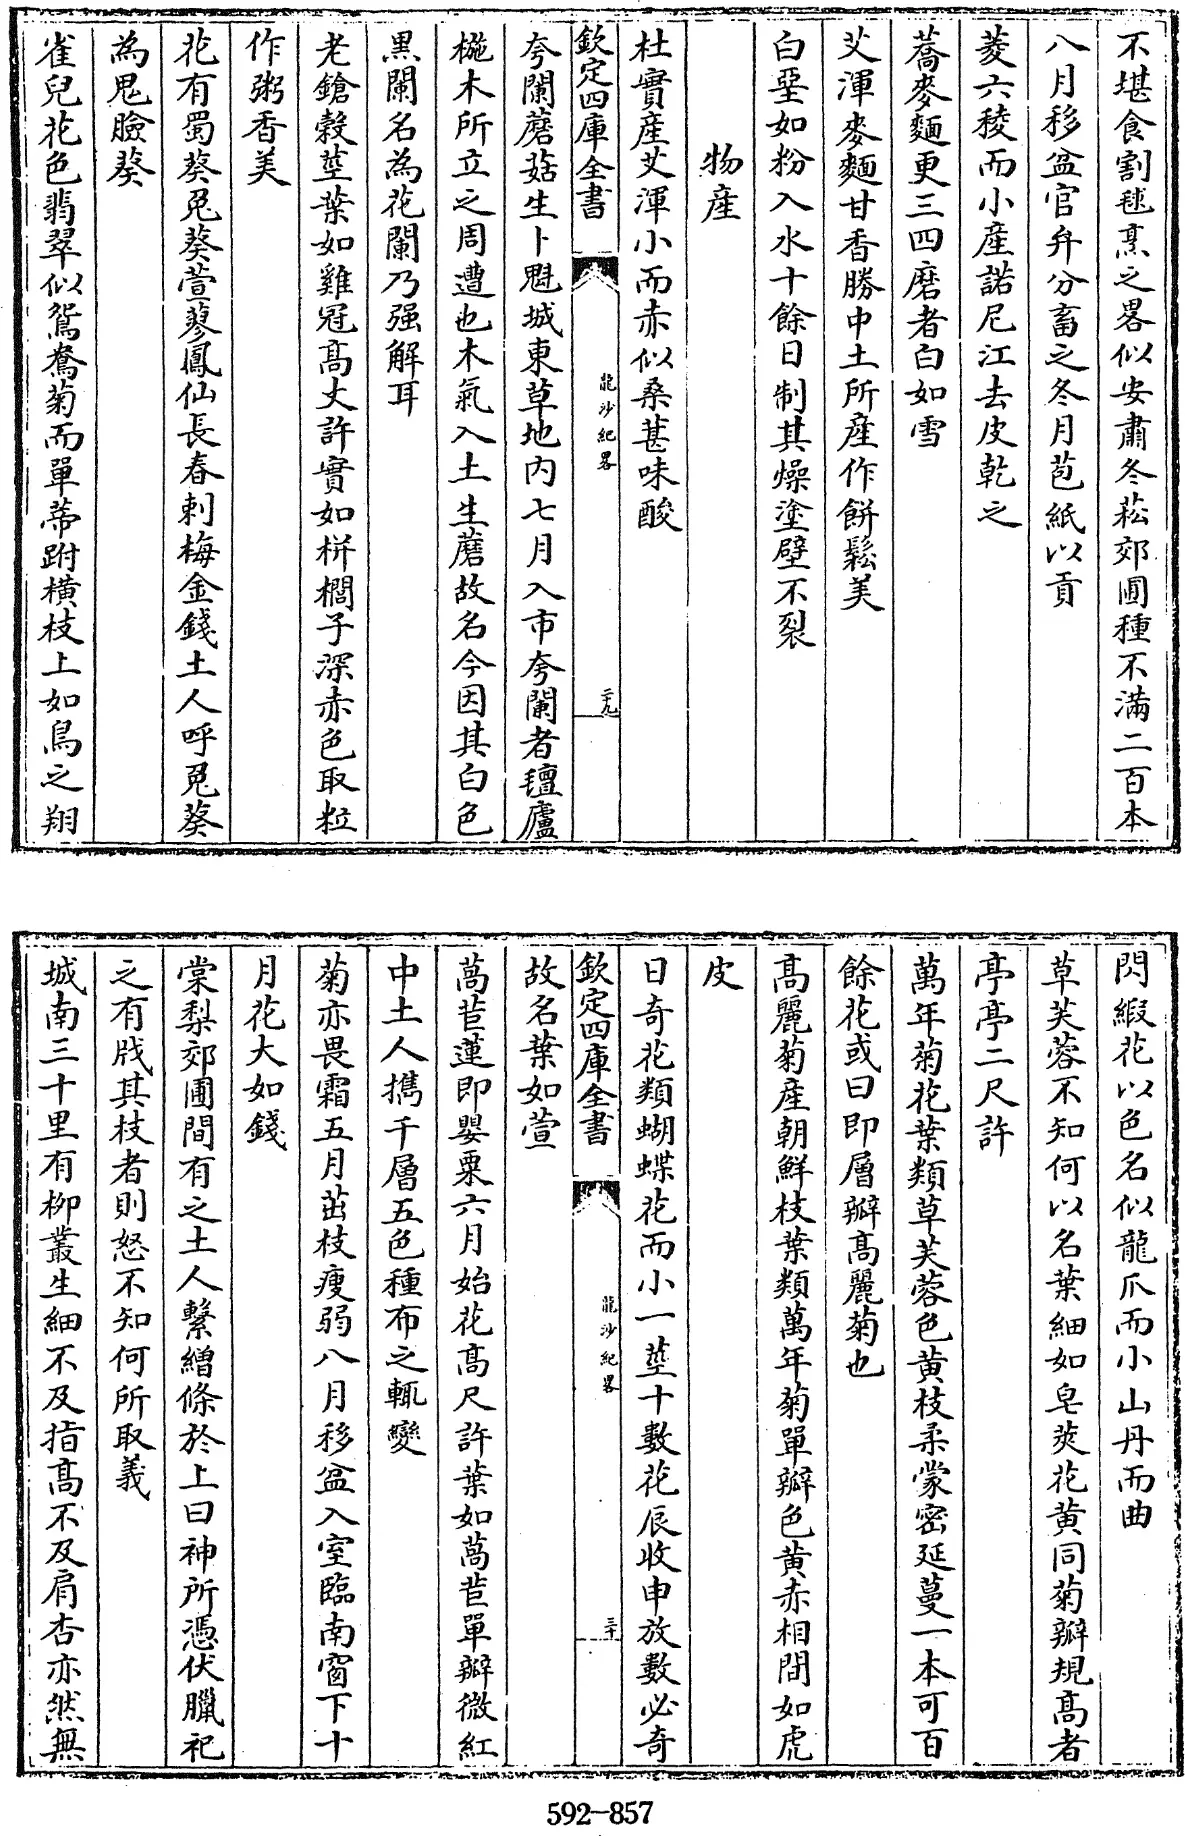 不堪食割毬烹之畧似安肅冬菘郊圃種不滿二百本
八月移盆官弁分畜之冬月苞紙以貢
菱六稜而小產諾尼江去皮乾之
蕎麥麵更三四磨者白如雪
艾渾麥麵甘香勝中土所產作餅鬆美
白堊如粉入水十餘日制其燥塗壁不裂
物產
杜實產艾渾小而赤似桑葚味酸
欽定四庫全書
龍沙紀畧
二十九
夸闌蘑菇生卜魁城東草地内七月入市夸闌者氊廬
椸木所立之周遭也木氣入土生蘑故名今因其白色
黒闌名為花闌乃强解耳
老鎗穀莖葉如雞冠高丈許實如栟櫚子深赤色取粒
作粥香美
花有蜀葵兎葵萱蓼鳳仙長春刺梅金錢土人呼兎葵
為鬼臉葵
雀兒花色翡翠似鴛鴦菊而單蒂跗橫枝上如鳥之翔
閃緞花以色名似龍爪而小山丹而曲
草芙蓉不知何以名葉細如皂莢花黄同菊瓣規高者
亭亭二尺許
萬年菊花葉類草芙蓉色黄枝柔蒙密延蔓一本可百
餘花或曰即層瓣高麗菊也
高麗菊產朝鮮枝葉類萬年菊單瓣色黄赤相間如虎
皮
日奇花類蝴蝶花而小一莖十數花辰收申放數必奇
欽定四庫全書
龍沙紀畧
三十
故名葉如萱
萵苣蓮即罌粟六月始花高尺許葉如萵苣單瓣微紅
中土人攜千層五色種布之輒變
菊亦畏霜五月茁枝瘦弱八月移盆入室臨南窗下十
月花大如錢
棠梨郊圃間有之土人繫繒條於上曰神所憑伏臘祀
之有戕其枝者則怒不知何所取義
城南三十里有柳叢生細不及指高不及肩杏亦然無
592-857